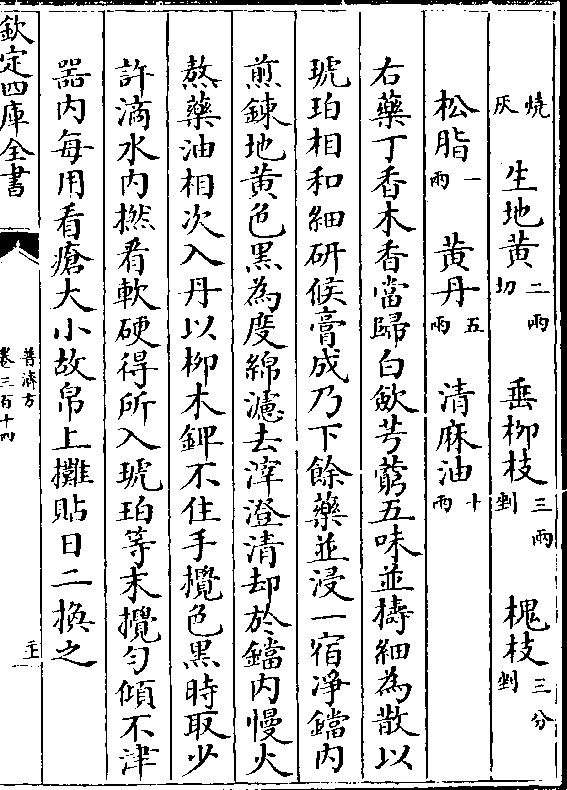 燒灰 生地黄二兩切 垂柳枝三兩剉 槐枝三分剉
松脂一兩 黄丹五兩 清麻油十兩
右藥丁香木香當歸白斂芎藭五味並擣細為散以
琥珀相和細研候膏成乃下餘藥並浸一宿凈鐺内
煎鍊地黄色黑為度綿濾去滓澄清却於鐺内慢火
熬藥油相次入丹以柳木鎞不住手攪色黑時取少
許滴水内撚看軟硬得所入琥珀等末攪匀傾不津
器内每用看瘡大小故帛上攤貼日二換之
欽定四庫全書
普濟方
卷三百十四